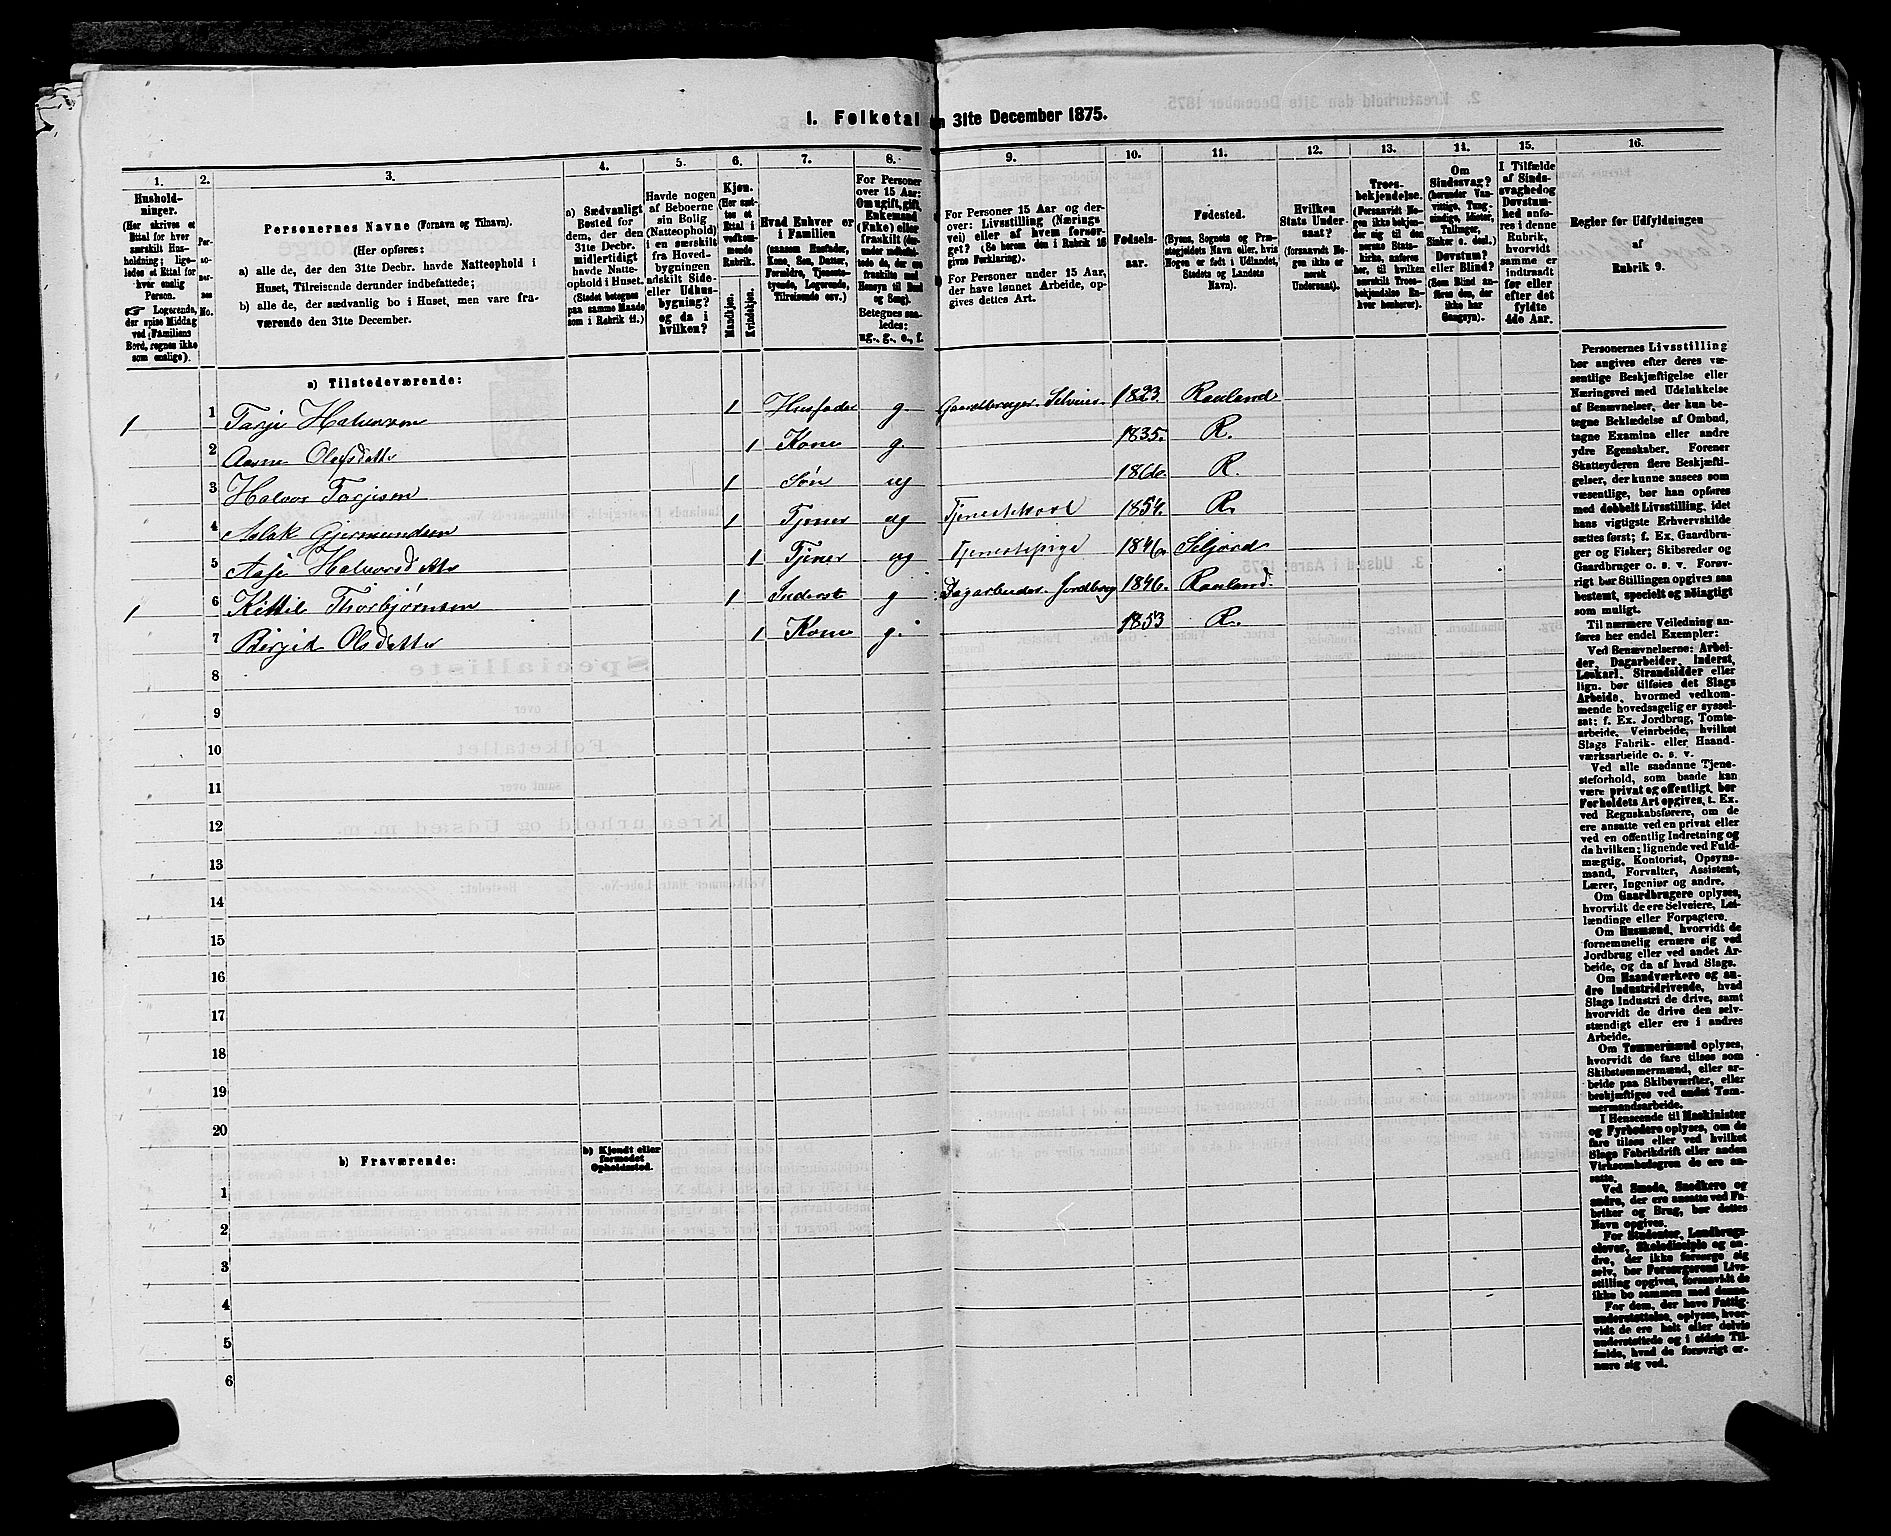 I. Folketal den 31te December 1875.
1. 2. 3. 4. 5. 6. 7. 8. 9. 10. 11. 12. 13. 14. 15. 16.
Husholdninger.
(Her skrives et Ettal for hver særskilt Husholdning; ligeledes et Ettal for hver enslig Person.
☞ Logerende, der spise Middag ved Familiens Bord, regnes ikke som enslige).
Personernes No.
Personernes Navne (Fornavn og Tilnavn).
(Her opføres:
a) alle de, der den 31te Decbr. havde Natteophold i Huset, Tilreisende derunder indbefattede;
b) alle de, der sædvanlig bo i Huset, men vare fraværende den 31te December.
a) Sædvanligt Bosted for dem, der den 31te Decbr. midlertidigt havde Natteophold i Huset. (Stedet betegnes paa samme Maade som i Rubrik 11.)
Havde nogen af Beboerne sin Bolig (Natteophold) i en særskilt fra Hovedbygningen adskilt Side- eller Udhusbygning? og da i hvilken?
Kjøn. (Her sættes et Ettal i vedkommende Rubrik.
Mandkjøn. Kvindekjøn.
Hvad Enhver er i Familien
(saasom Husfader, Kone, Søn, Datter, Forældre, Tjenestetyende, Logerende, Tilreisende osv.)
For Personer over 15 Aar: Om ugift, gift, Enkemand (Enke) eller fraskilt
Betegnes saaledes: ug., g., e., f.
For Personer 15 Aar og derover: Livsstilling (Næringsvei) eller af hvem forsørget? (Se herom den i Rubrik 16 givne Forklaring).
For Personer under 15 Aar, der have lønnet Arbeide, opgives dettes Art.
Fødselsaar.
Fødested.
(Byens, Sognets og Præstegjeldets Navn eller, hvis Nogen er født i Udlandet, Stedets og Landets Navn).
Hvilken Stats Undersaat?
(forsaavidt Nogen ikke er norsk Undersaat).
Troesbekjendelse.
(Forsaavidt Nogen ikke bekjender sig til den norske Statskirke, anføres her, til hvilken særskilt Troesbekjendelse Enhver henhører).
Om Sindssvag?
Døvstum?
eller Blind? (Som Blind anføres den, der ikke har Gangsyn).
I Tilfælde af Sindssvaghed og Døvstumhed anføres i denne Rubrik, hvorvidt samme er indtraadt før eller efter det fyldte 4de Aar.
Regler for Udfyldningen af Rubrik 9.
a) Tilstedeværende:
1 1 Tarje Halvorsen 1 Husfader g. Gaardbruger Selveier 1823. Rauland
2 Aasne Olafsdatter 1 Kone g. 1835. R.
3 Halvor Tarjesen 1 Søn ug 1860. R.
4 Aslak Gjermundsen 1 Tjener ug Tjenestekarl 1854. R.
5 Aase Halvorsdatter 1 Tjener ug Tjenestepige 1846. Seljord
1 6 Kittil Thorbjørnsen 1 Inderst g Dagarbeider Jordbrug 1846. Rauland.
7 Birgit Olsdatter 1 Kone g. 1853 R.
8
9
10
11
12
13
14
15
16
17
18
19
20
b) Fraværende:
b) Kjendt eller formodet Opholdssted.
1
2
3
4
5
6
Personernes Livsstilling
bør angives efter deres væ-
sentlige Beskjæftigelse eller
Næringsvei med Udelukkelse
af Benævnelser, der kun be-
tegne Beklædelse af Ombud,
tagne Examina eller andre
ydre Egenskaber. Forener
Skatteyderen flere Beskjæfti-
gelser, der kunne ansees som
væsentlige, bør han opføres
med dobbelt Livsstilling, idet
hans vigtigste Erhvervskilde
sættes først; f. Ex. Gaardbru-
ger og Fisker; Skibsreder og
Gaardbruger o. s. v. Forøv-
rigt bør Stillingen opgives saa
bestemt, specielt og nøiagtigt
som muligt.
Til nærmere Veiledning an-
føres her endel Exempler:
Ved Benævnelserne: Arbei-
der, Dagarbeider, Inderst,
Løskarl, Strandsidder eller
lign. bør tilføies det Slags
Arbeide, hvormed vedkom-
mende hovedsagelig er syssel-
sat; f. Ex. Jordbrug, Tomte-
arbeide, Veiarbeide, hvilket
Slags Fabrik- eller Haand-
værksarbeide o. s. v.
Ved alle saadanne Tjene-
steforhold, som baade kan
være privat og offentligt, bør
Forholdets Art opgives, t. Ex.
ved Regnskabsførere, om de
ere ansatte ved en privat eller
ved en offentlig Indretning og
da hvilken; lignende ved Fuld-
mægtig, Kontorist, Opsyns-
mand, Forvalter, Assistent,
Lærer, Ingeniør og andre.
Om Gaardbrugere oplyses,
hvorvidt de ere Selveiere, Lei-
lændinge eller Forpagtere.
Om Husmænd, hvorvidt de
fornemmelig ernære sig ved
Jordbrug eller ved andet Ar-
beide, og da af hvad Slags.
Om Haandværkere og an-
dre Industridrivende, hvad
Slags Industri de drive, samt
hvorvidt de drive den selv-
stændigt eller ere i andres
Arbeide.
Om Tømmermænd oplyses,
hvorvidt de fare tilsøs som
Skibstømmermænd, eller ar-
beide paa Skibsværfter, eller
beskjæftiges ved andet Tøm-
mermandsarbeide.
I Henseende til Maskinister
og Fyrbødere oplyses, om de
fare tilsøs eller ved hvilket
Slags Fabrikdrift eller anden
Virksomhedsgren de ere an-
satte.
Ved Smede, Snedkere og
andre, der ere ansatte ved Fa-
briker og Brug, bør dettes
Navn opgives.
For Studenter, Landbrugs-
elever, Skoledisciple og an-
dre, der ikke forsørge sig
selv, bør Forsørgerens Livs-
stilling opgives, forsaavidt de
ikke bo sammen med denne.
For dem, der have Fattig-
understøttelse, oplyses, hvor-
vidt de ere helt eller delvis
understøttede og i sidste Til-
fælde, hvad de forøvrigt er-
nære sig ved.